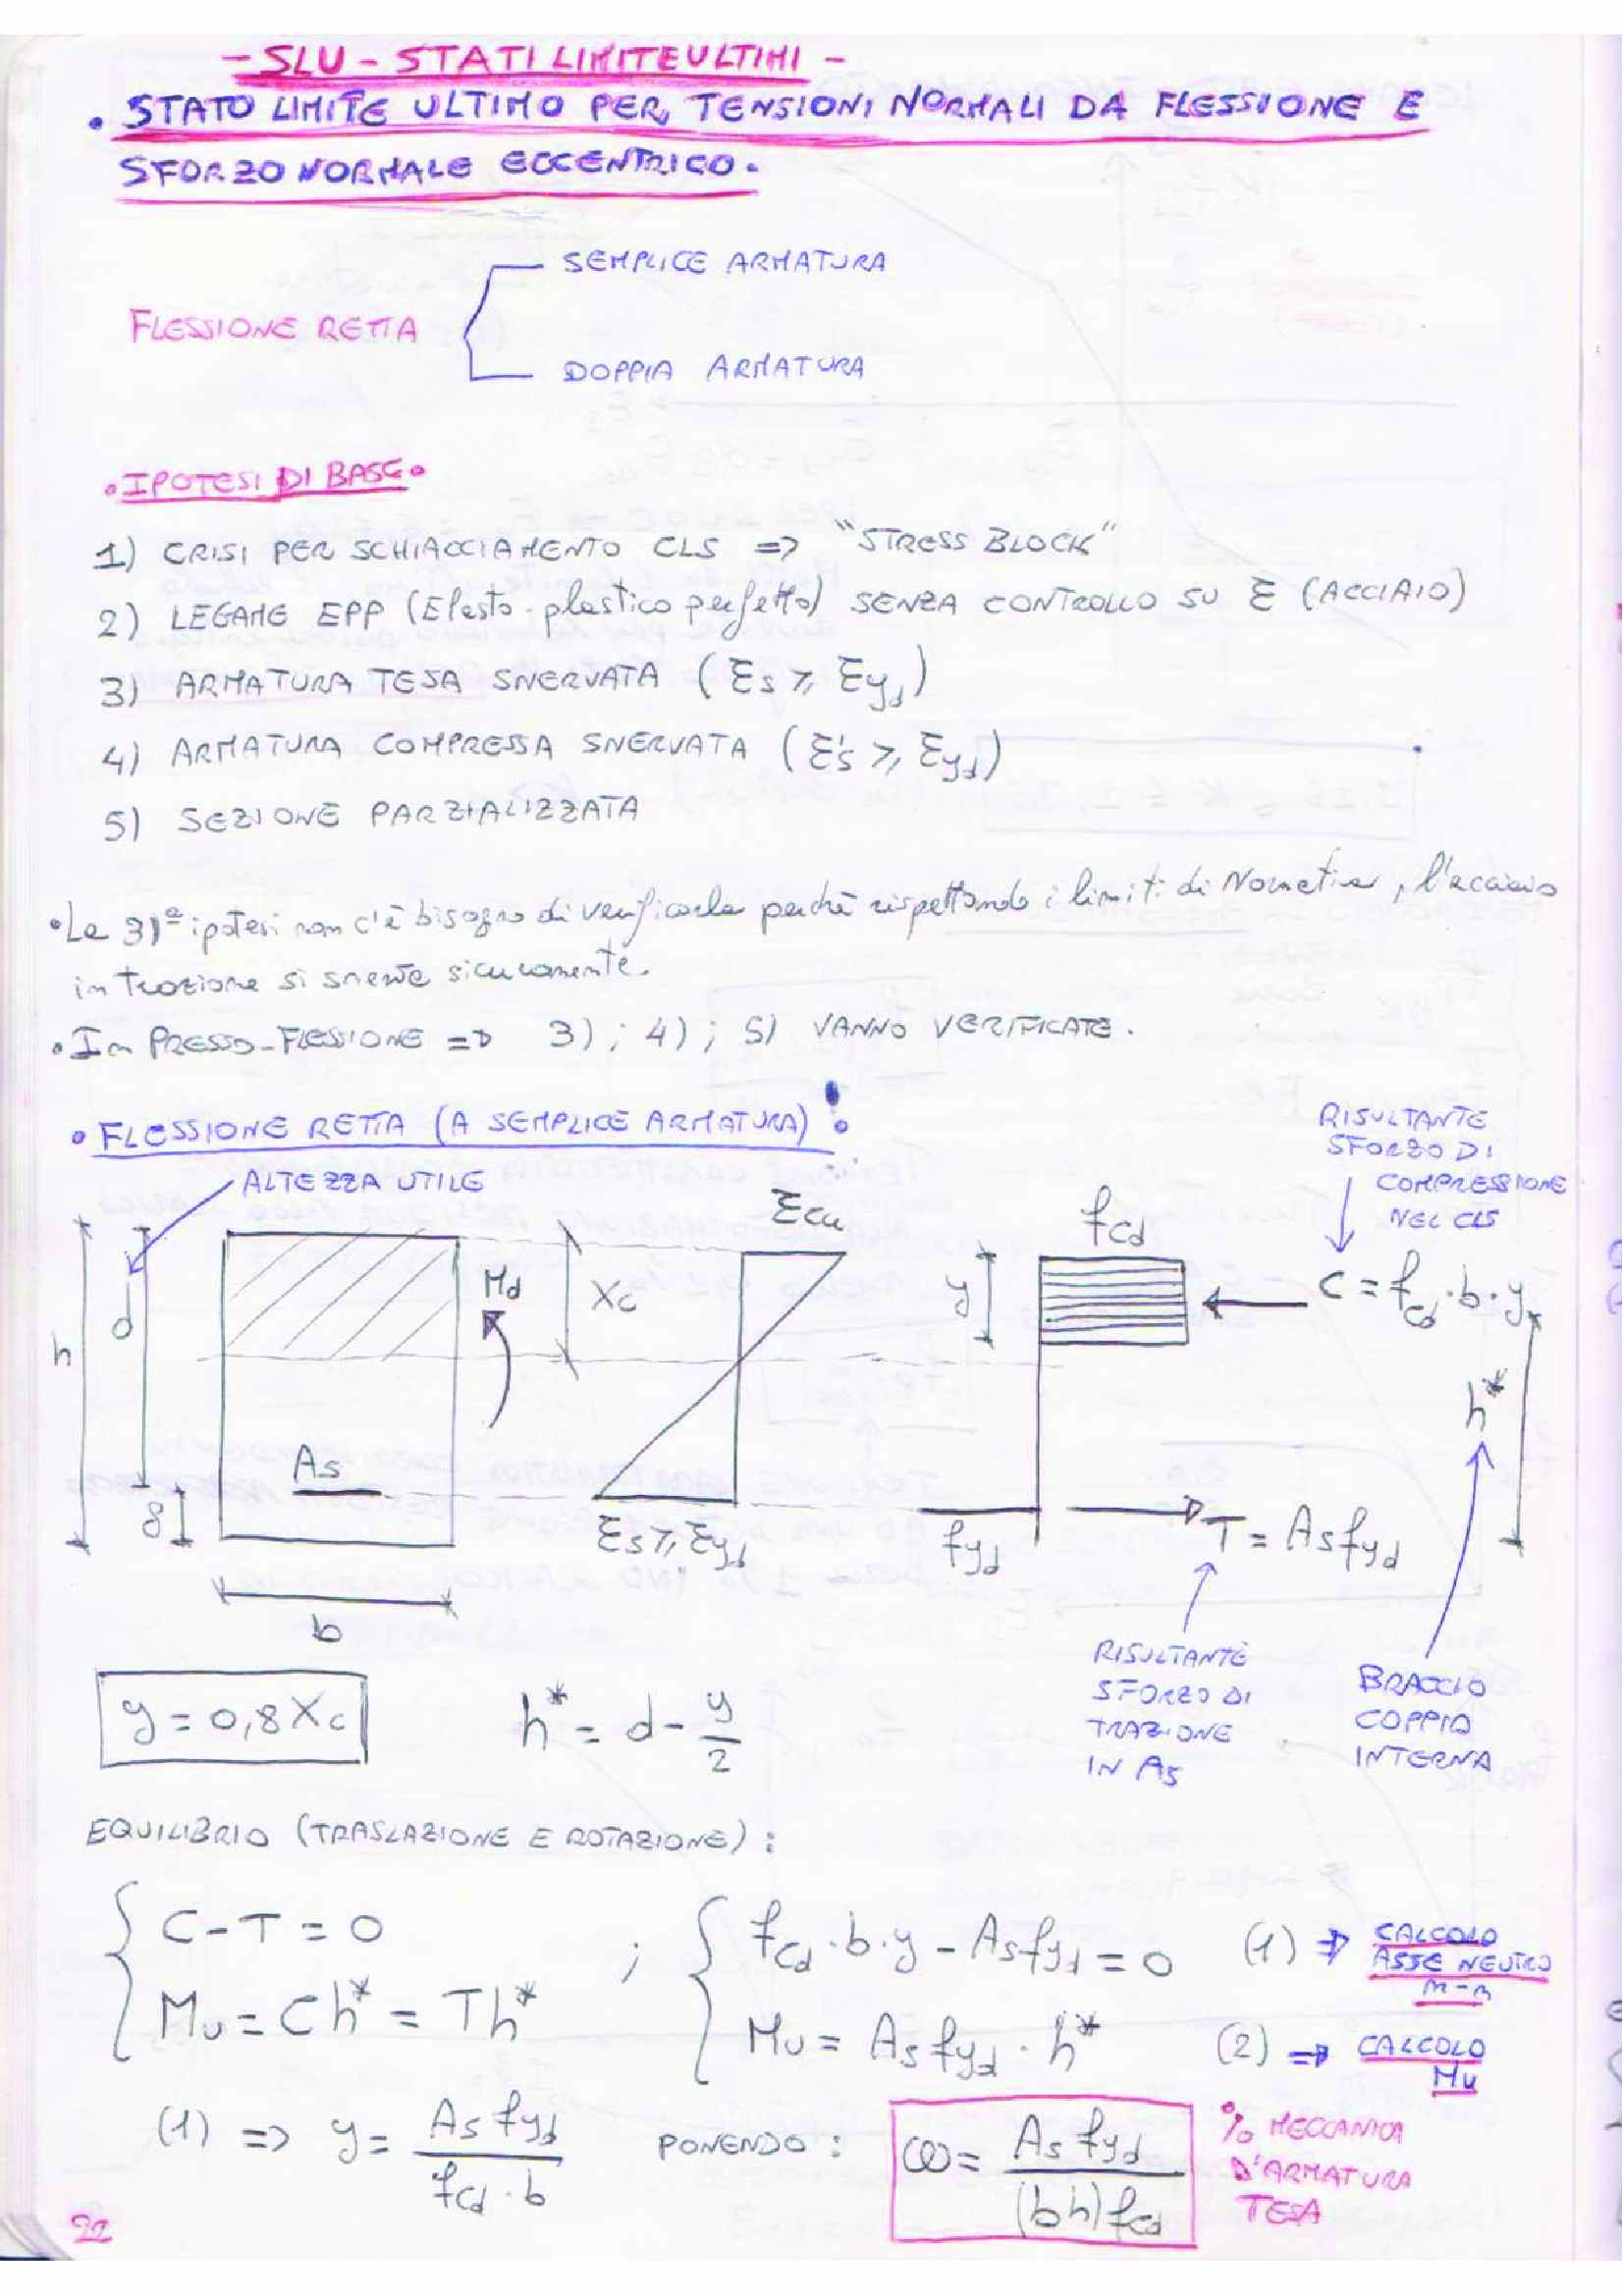 - SLU - STATI LIMITE ULTIMI -
• STATO LIMITE ULTIMO PER TENSIONI NORMALI DA FLESSIONE E
SFORZO NORMALE ECCENTRICO.
SEMPLICE ARMATURA
FLESSIONE RETTA
DOPPIA ARMATURA
• IPOTESI DI BASE •
1) CRISI PER SCHIACCIAMENTO CLS => "STRESS BLOCK"
2) LEGAME EPP (Elasto-plastico perfetto) SENZA CONTROLLO SU ε (ACCIAIO)
3) ARMATURA TESA SNERVATA (εs ⩾ εyd)
4) ARMATURA COMPRESSA SNERVATA (ε's ⩾ εyd)
5) SEZIONE PARZIALIZZATA
• La 3)ª ipotesi non c'è bisogno di verificarla perchè rispettando i limiti di Normativa, l'acciaio
in trazione si snerva sicuramente.
• In PRESSO-FLESSIONE => 3) ; 4) ; 5) VANNO VERIFICATE.
• FLESSIONE RETTA (A SEMPLICE ARMATURA) :
RISULTANTE
SFORZO DI
COMPRESSIONE
NEL CLS
ALTEZZA UTILE
εcu
fcd
h
d
Md
Xc
y
C = fcd · b · y
h*
As
δ
εs ⩾ εyd
fyd
T = As fyd
b
RISULTANTE
SFORZO DI
TRAZIONE
IN As
BRACCIO
COPPIA
INTERNA
y = 0,8 Xc
h* = d - y/2
EQUILIBRIO (TRASLAZIONE E ROTAZIONE) :
C - T = 0 ; fcd · b · y - As fyd = 0 (1) => CALCOLO ASSE NEUTRO n-n
Mu = C h* = T h* Mu = As fyd · h* (2) => CALCOLO Mu
(1) => y = As fyd / fcd · b PONENDO : ω = As fyd / (bh) fcd
% MECCANICA
D'ARMATURA
TESA
22